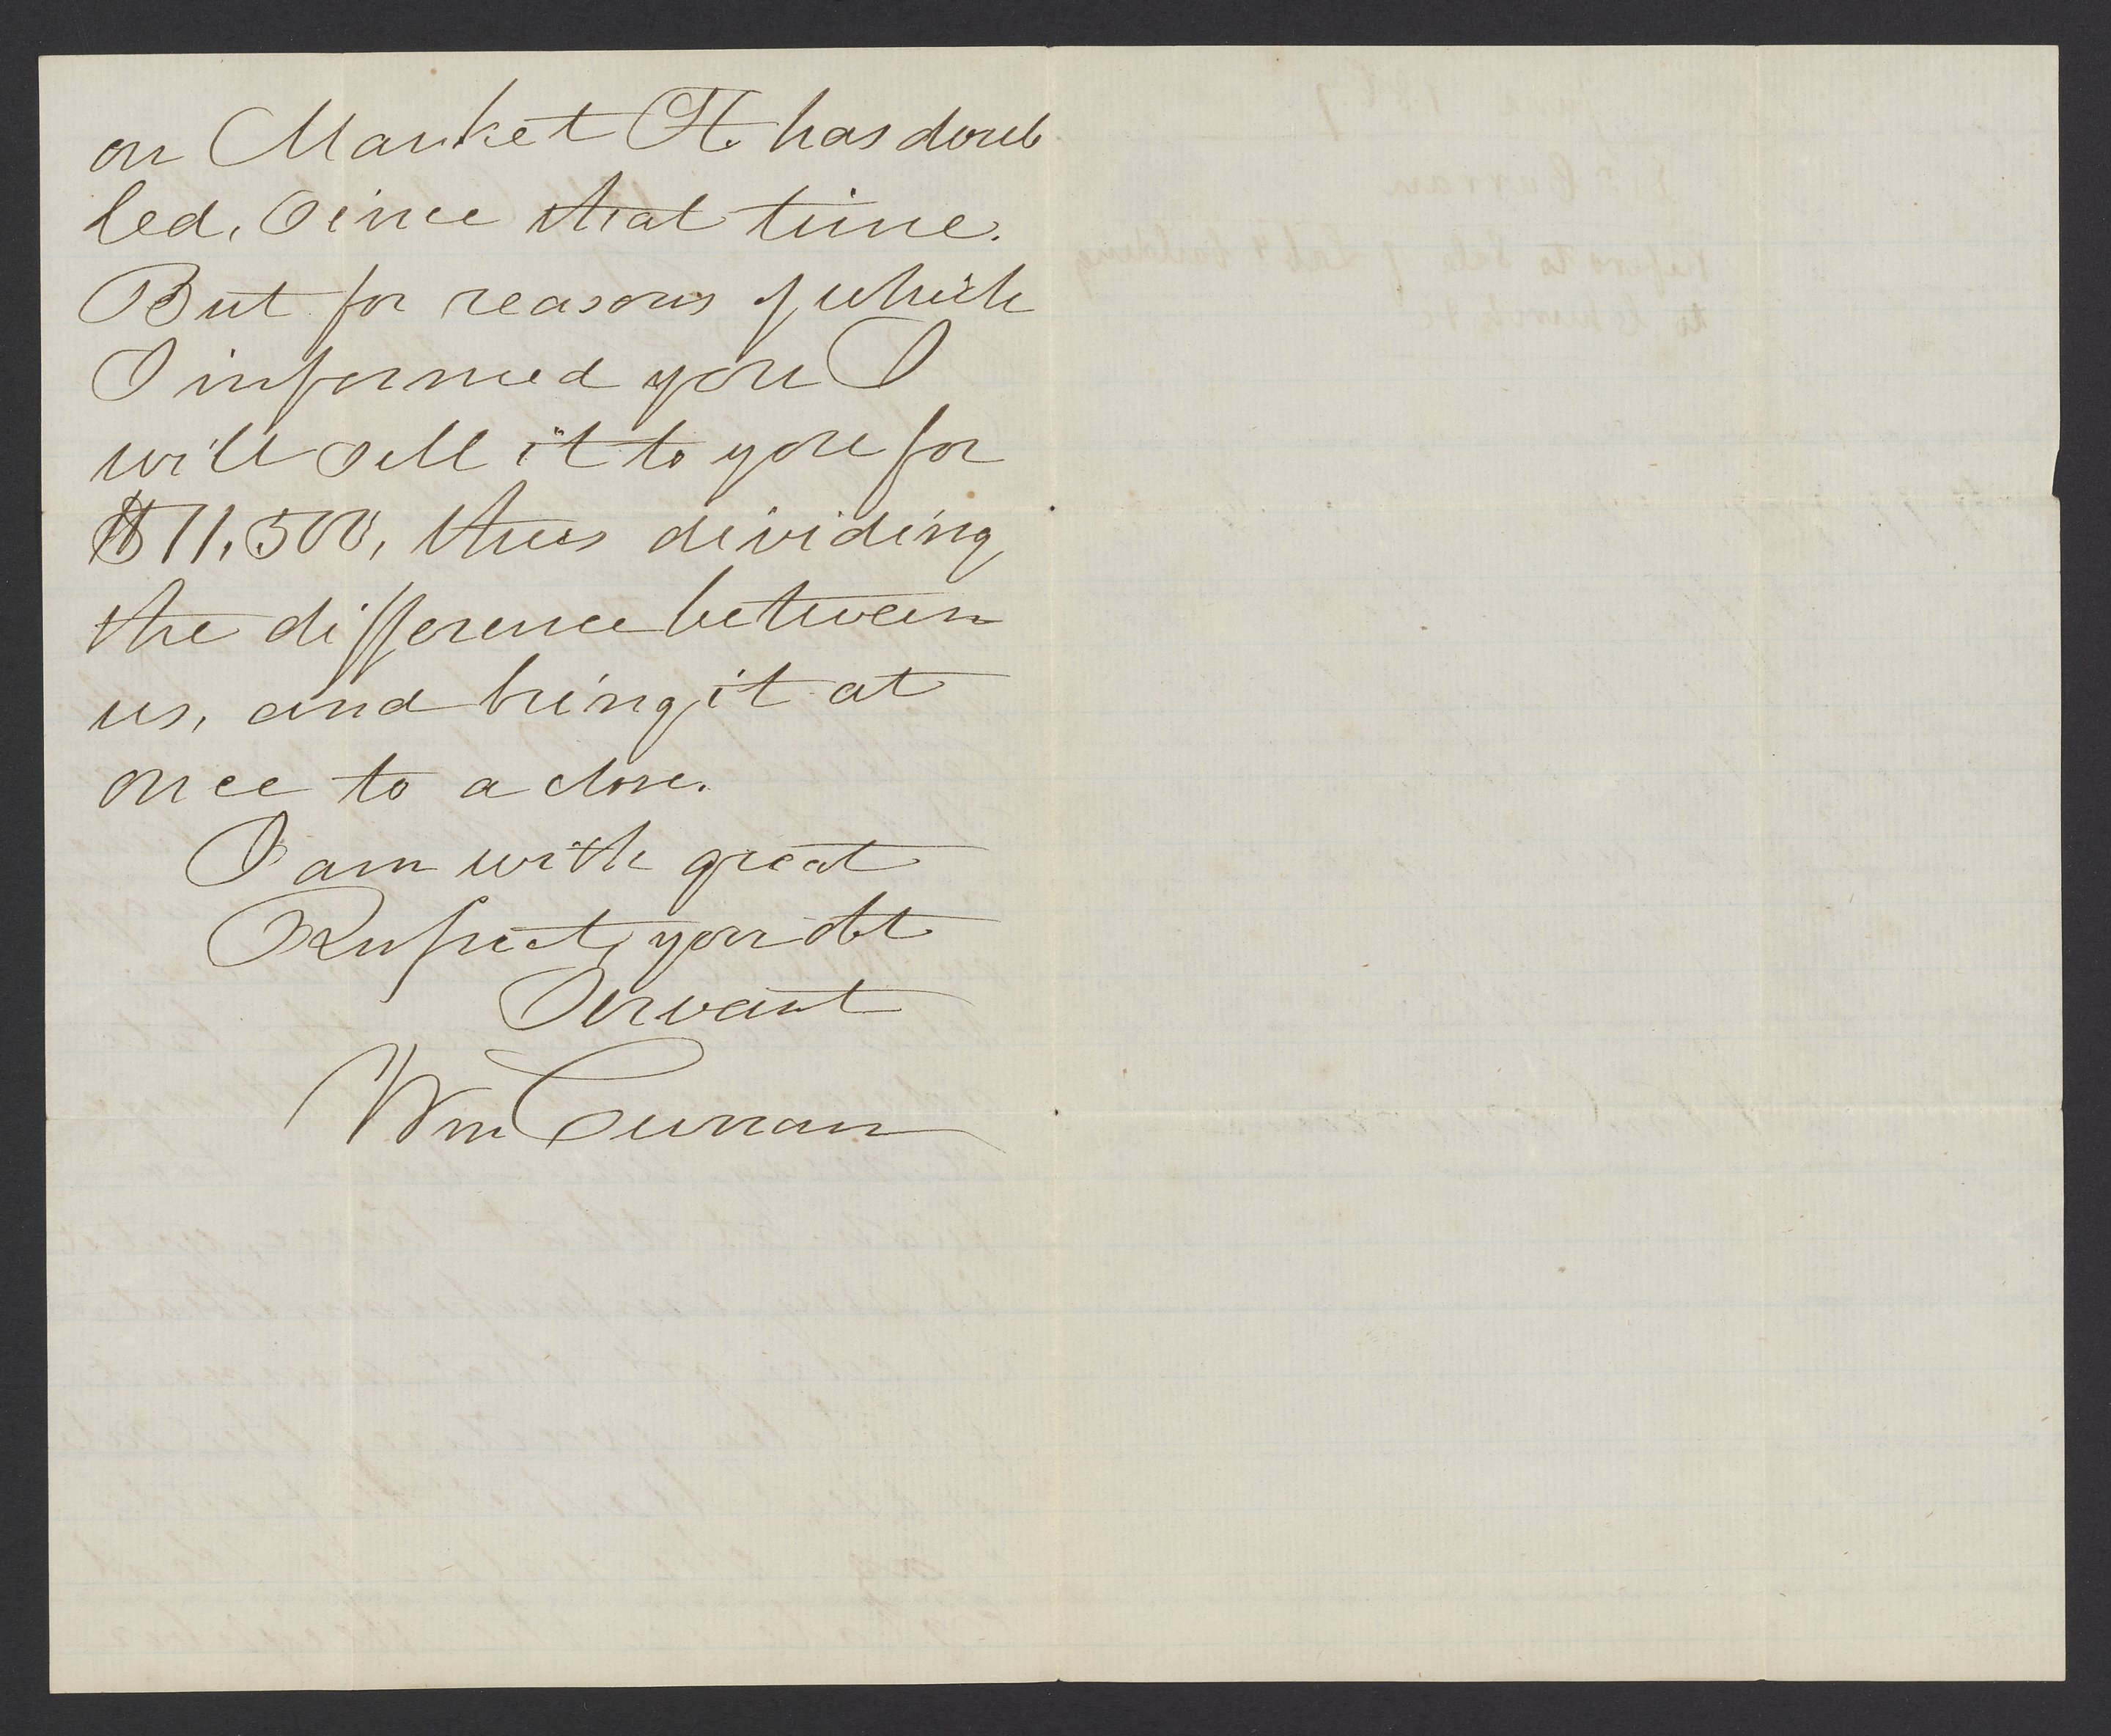 on Market St. has doub
led, Since that time.
But for reasons of which
I informed you I
will sell it to you for
$11,500, thus dividing
the difference between
us, and bring it at
once to a close.
I am with great
Respect, your obt
Servant
Wm Curran